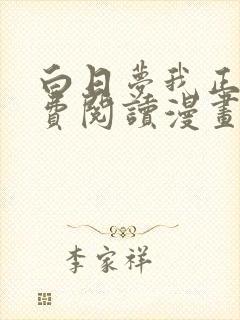 白日夢我正
費閱讀漫畫
李家祥